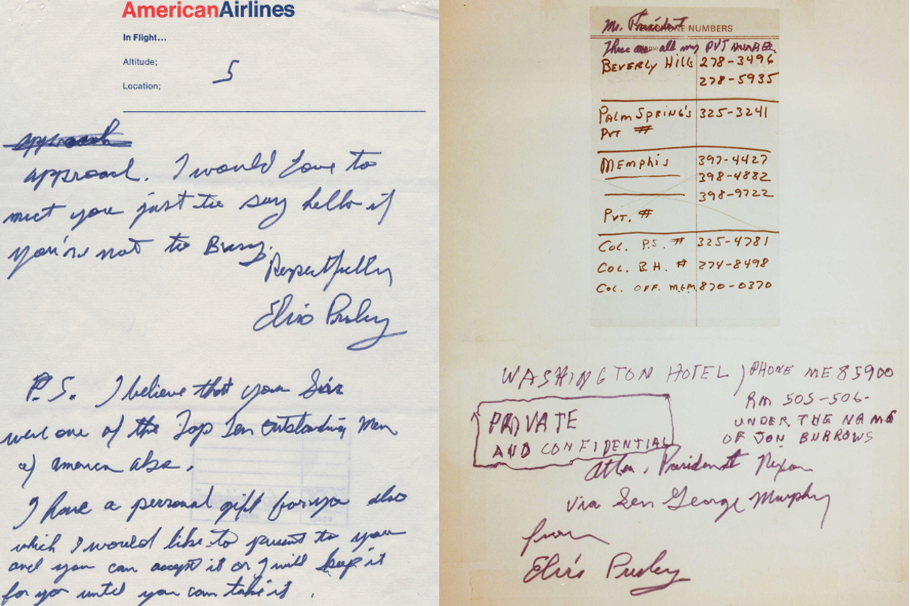 AmericanAirlines
In Flight...
Altitude;
Location;
5
approach
approach. I would love to
meet you just to say hello if
you're not to Busy.
Respectfully
Elvis Presley
P.S. I believe that you Sir
were one of the Top Ten Outstanding Men
of america also.
I have a personal gift for you also
which I would like to present to you
and you can accept it or I will keep it
for you until you can take it.
Mr. President
PHONE NUMBERS
These are all my PVT NUMBERS
BEVERLY HILLS 278-3496
278-5935
PALM SPRING'S 325-3241
PVT #
MEMPHIS 397-4427
398-4882
398-9722
PVT. #
COL. P.S. # 325-4781
COL. B.H. # 274-8498
COL. OFF. M.G.M 870-0370
WASHINGTON HOTEL, PHONE ME 85900
RM 505-506-
UNDER THE NAME
OF JON BURROWS
PRIVATE
AND CONFIDENTIAL
Attn. President Nixon
via Sen George Murphy
from
Elvis Presley